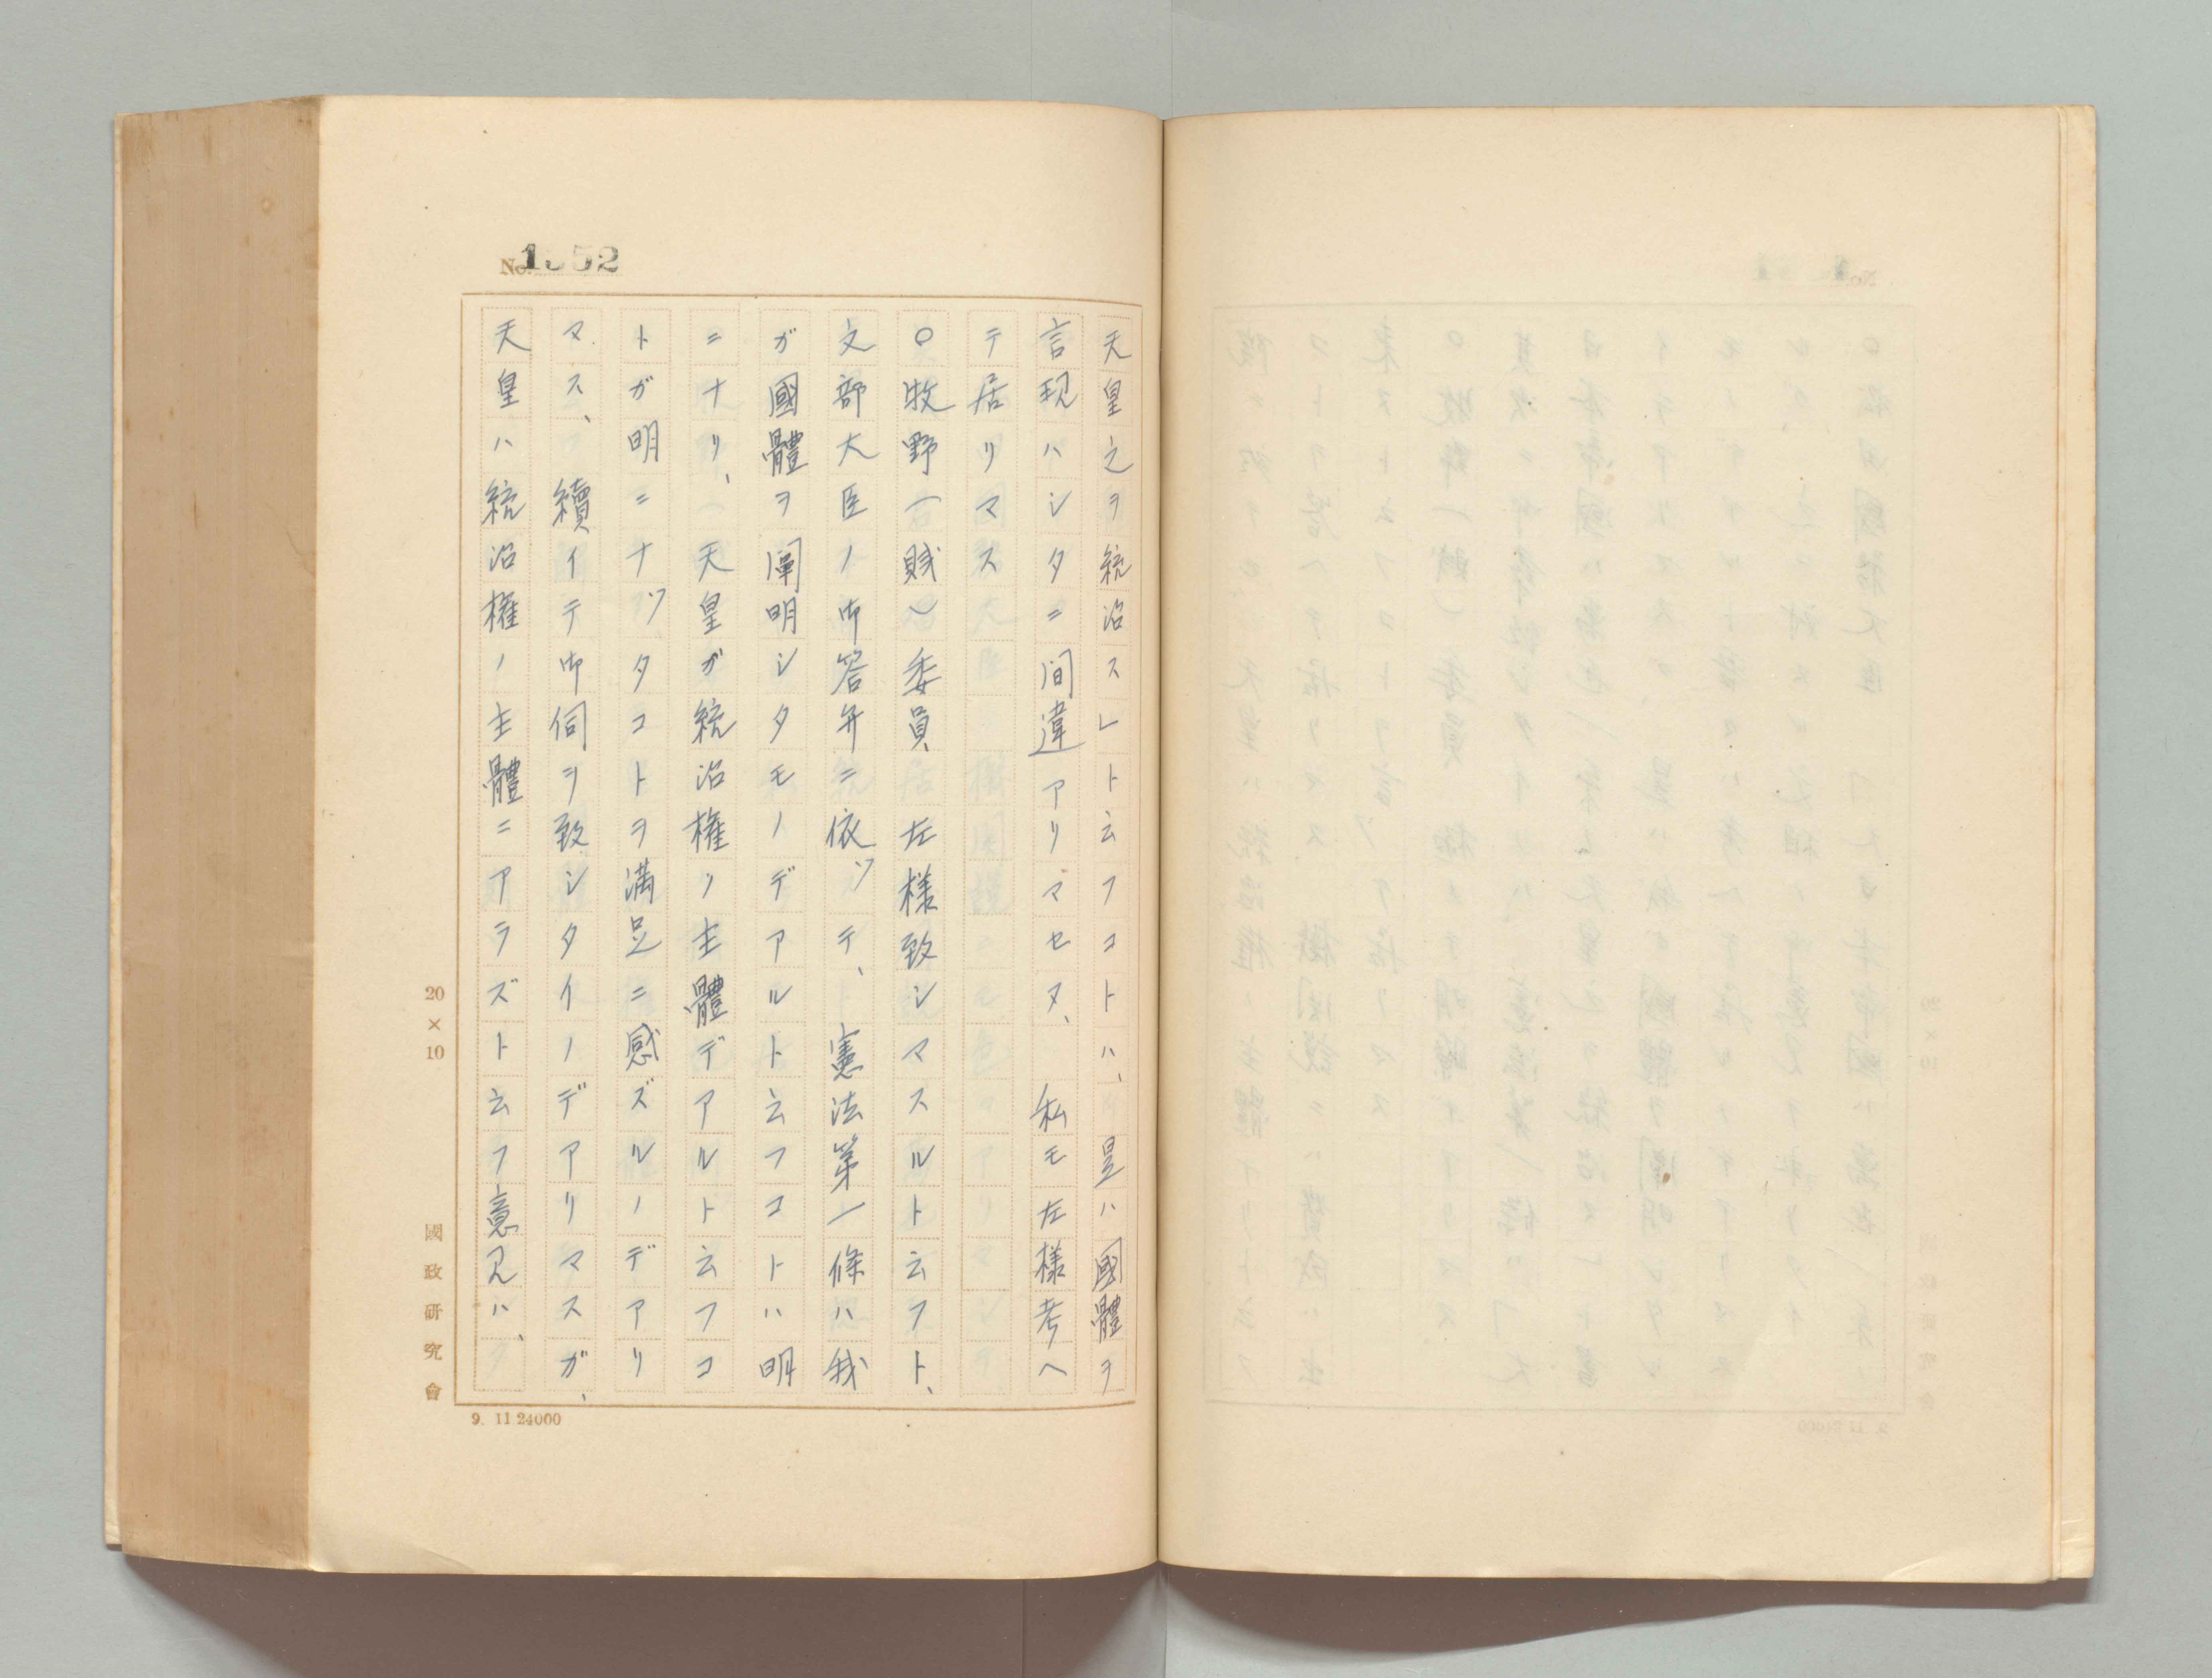 天皇之ヲ統治ス」ト云フコトハ、是ハ國體ヲ
言現ハシタニ間違アリマセヌ、私モ左様考ヘ
テ居リマス
〇牧野(賤)委員 左様致シマスルト云フト、
文部大臣ノ御答弁ニ依ッテ、憲法第一條ハ我
ガ國體ヲ闡明シタモノデアルト云フコトハ明
ニナリ、天皇ガ統治権ノ主體デアルト云フコ
トガ明ニナッタコトヲ満足ニ感ズルノデアリ
マス、續イテ御伺ヲ致シタイノデアリマスガ、
天皇ハ統治権ノ主體ニアラズト云フ意見ハ、
20×10
國政研究會
9. 11 24000